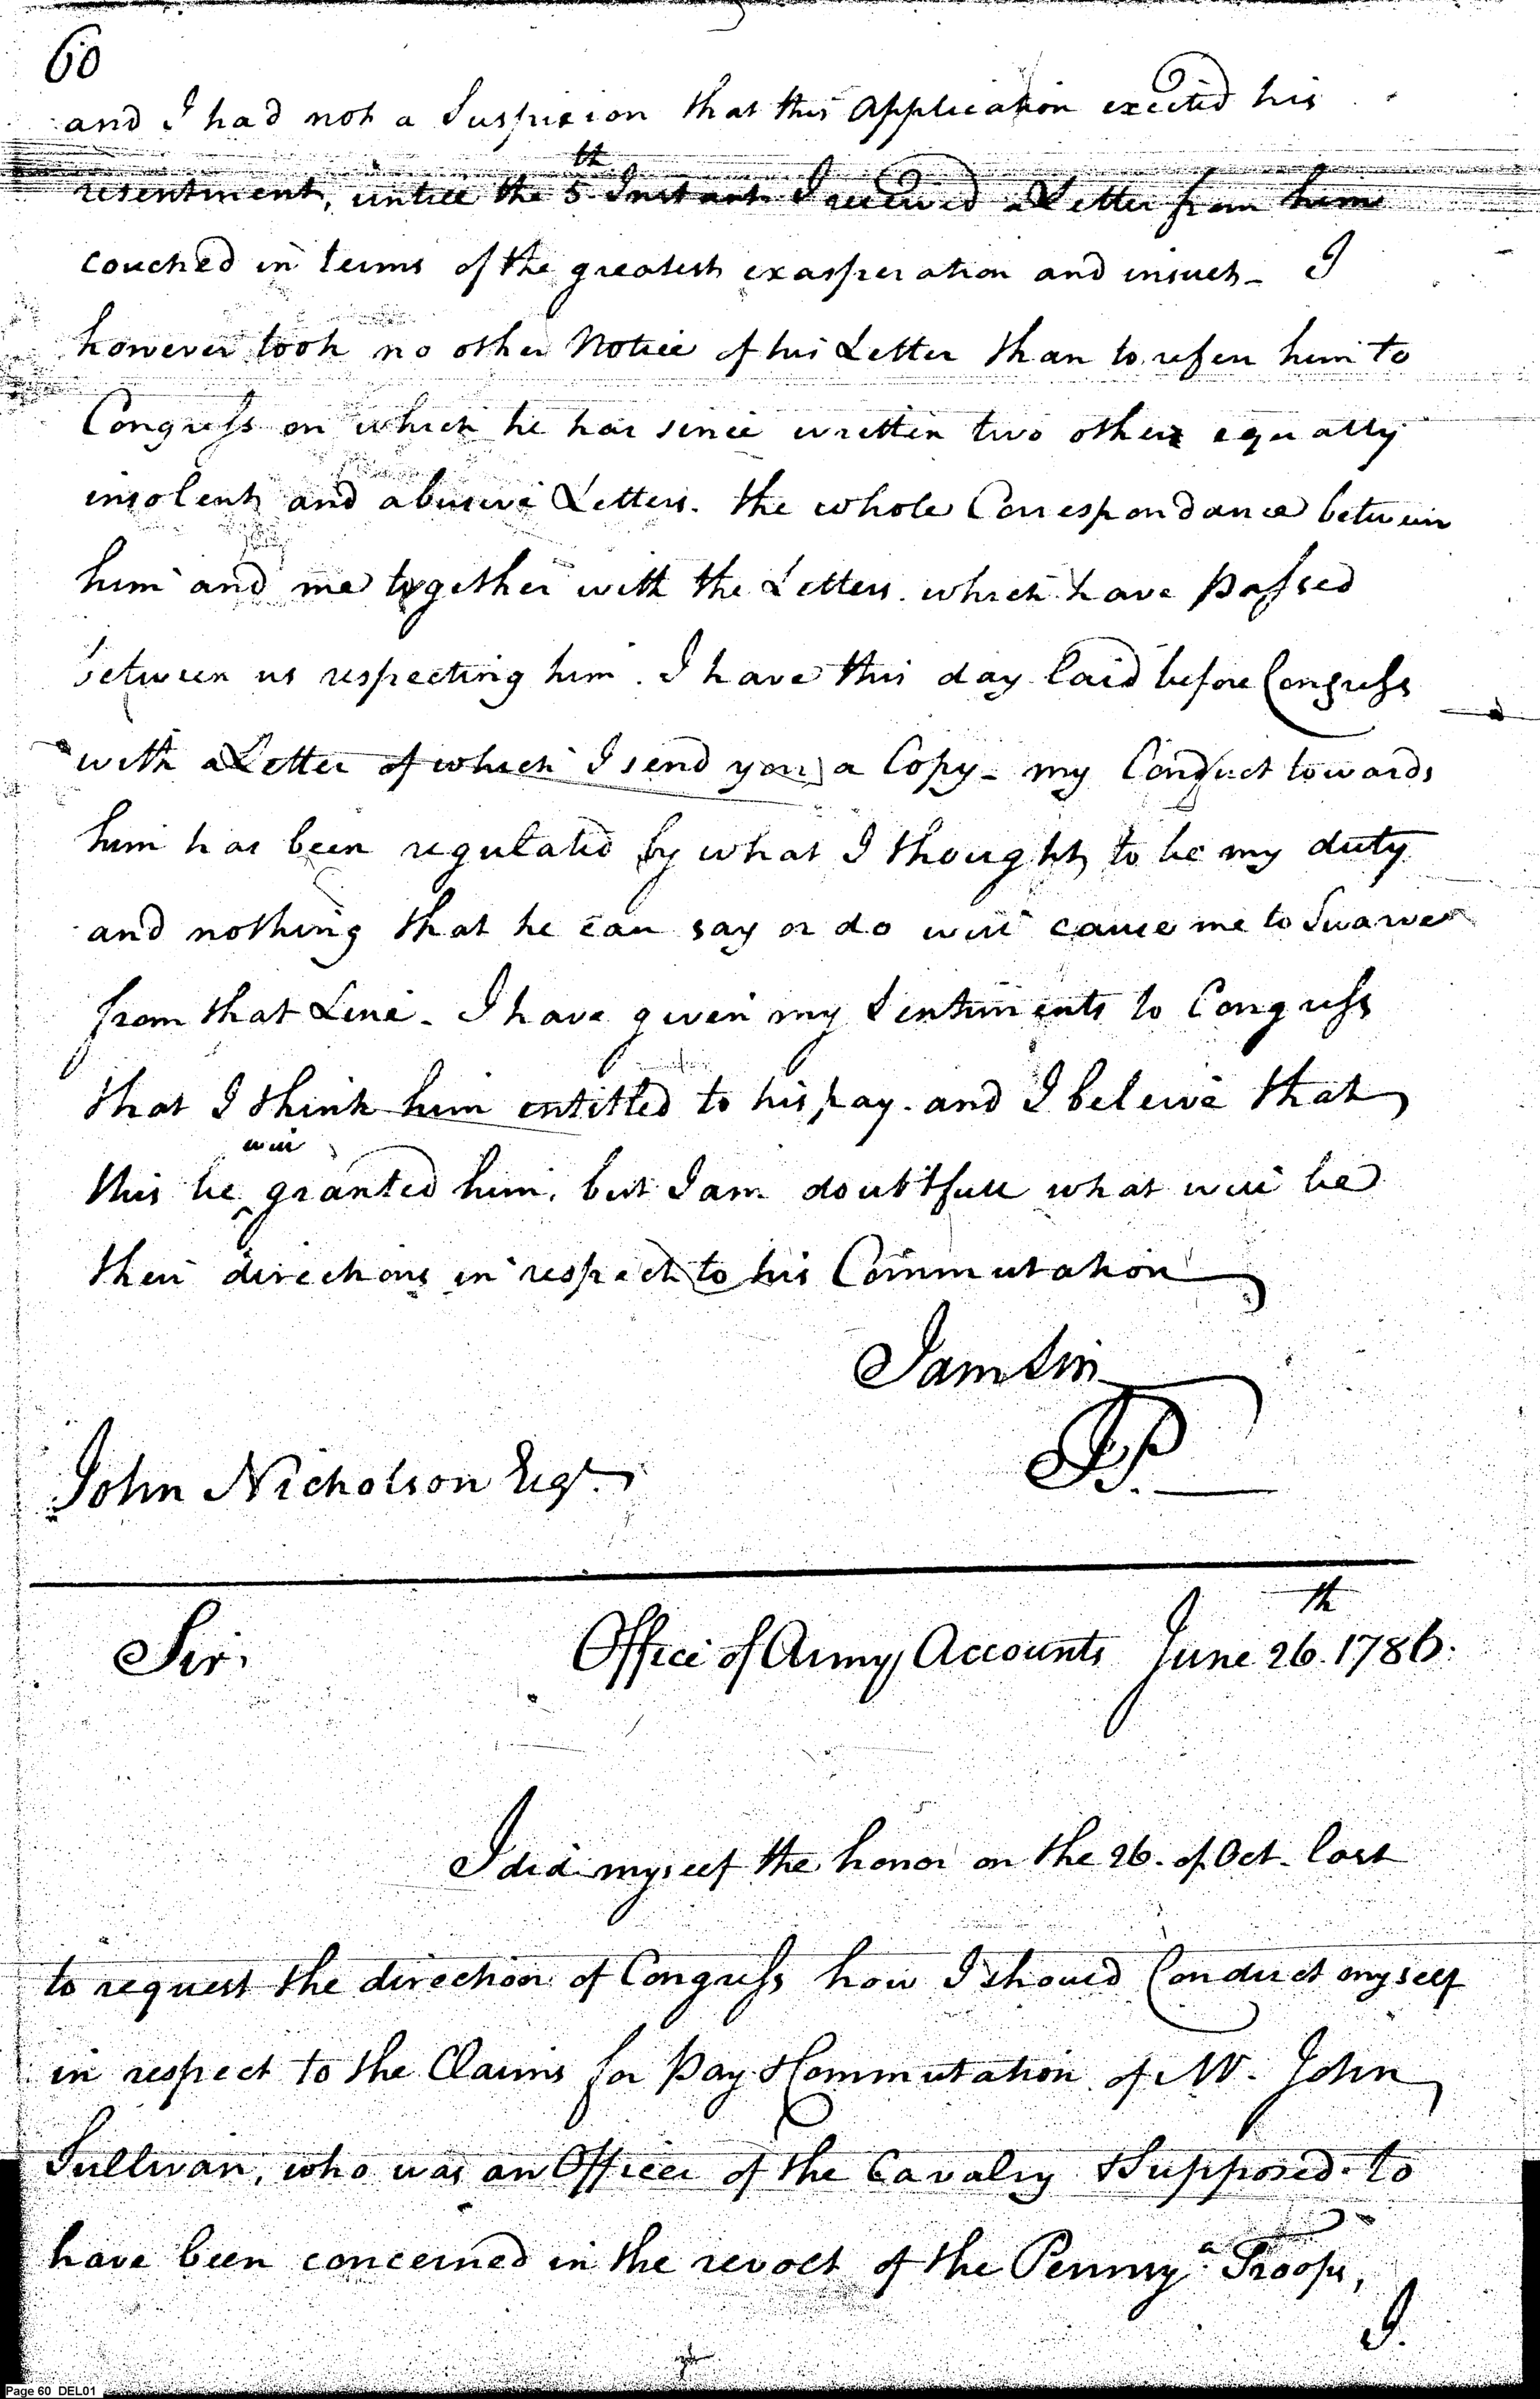 60
and I had not a Suspicion that this Application excited his
resentment, untill the 5th Instant I received a Letter from him
couched in terms of the greatest exasperation and insult - I
however took no other Notice of his Letter than to refer him to
Congress on which he has since written two other equally
insolent and abusive Letters. the whole Correspondance between
him and me together with the Letters which have passed
between us respecting him. I have this day laid before Congress
with a Letter of which I send you a Copy - my Conduct towards
him has been regulated by what I thought to be my duty
and nothing that he can say or do will cause me to Swarve
from that Line - I have given my Sentiments to Congress
that I think him entitled to his pay. and I beleive that
will
this be ^ granted him, but I am doubtfull what will be
their directions in respect to his Commutation
I am Sir
JP.
John Nicholson Esqr.
Sir, Office of Army Accounts June 26th. 1786.
I did myself the honor on the 26. of Oct. last
to request the direction of Congress how I should Conduct myself
in respect to the Claims for Pay & Commutation of Mr. John
Sullivan, who was an Officer of the Cavalry & Supposed to
have been concerned in the revolt of the Pennsya. Troops,
I.
Page 60 DEL01